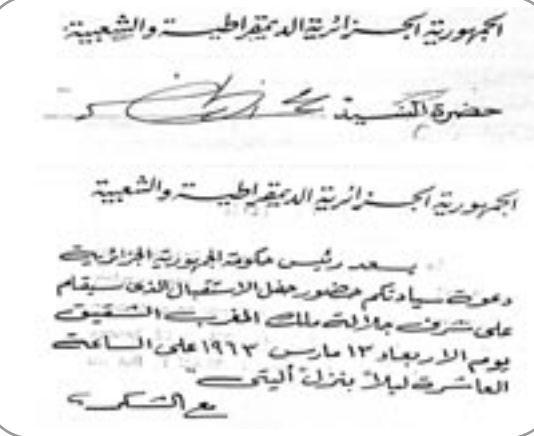 الجمهورية الجزائرية الديمقراطية والشعبية
حضرة السيد
الجمهورية الجزائرية الديمقراطية والشعبية
يسعد رئيس حكومة الجمهورية الجزائرية
دعوة سيادتكم لحضور حفل الاستقبال الذي سيقام
على شرف جلالة ملك المغرب الشقيق
يوم الاربعاء ١٣ مارس ١٩٦٣ على الساعة
العاشرة ليلا بنزل أليتي
مع الشكر